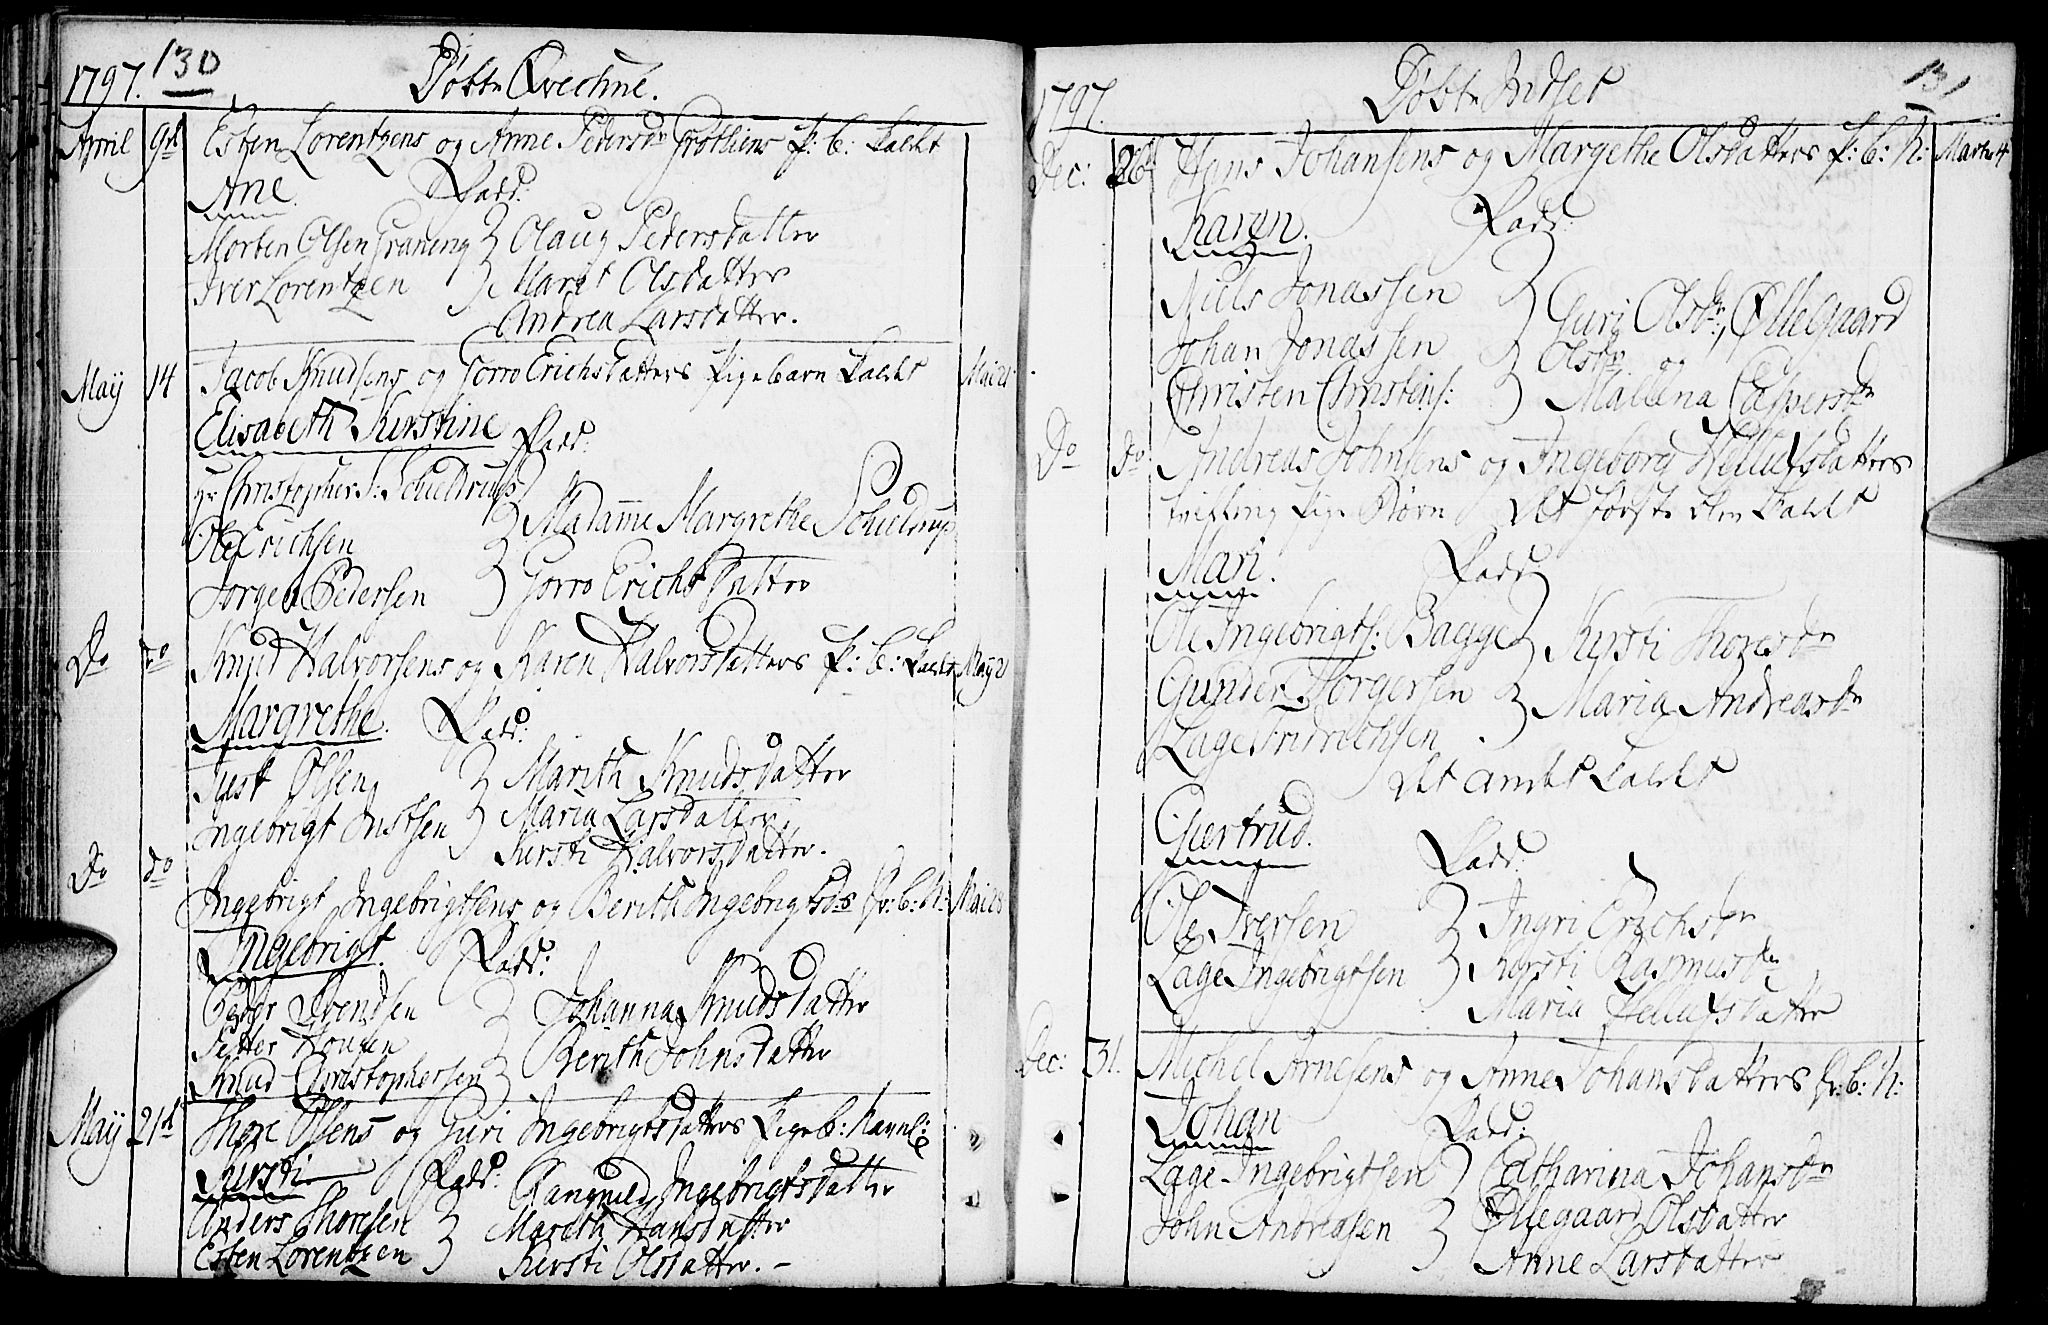 1797. 130 Døbte Qvechne.
April 9de Esten Lorentzens og Anne Pedersdr Grøtliens P: b: kaldt
Ane. Fadd:
Morten Olsen Graneng } Olaug Pedersdatter
Iver Lorentzen } Maret Olsdatter
Andrea Larsdatter.
May 14 Jacob Knudsens og Gorro Erichsdatters Pigebarn kaldet Maj 21
Elisabeth Kirstine Fadd:
Hr Christopher S: Schieldrup
Ole Erichsen } Madame Margrethe Schieldrup
Jørgen Pedersen } Gorro Erichsdatter
Do do Knud Halvorsens og Karen Halvorsdatters P: b: kaldt May 21
Margrethe. Fadd:
Just Olsen } Marith Knudsdatter
Ingebrigt Justsen } Maria Larsdatter,
Kirsti Halvorsdatter.
Do do Ingebrigt Ingebrigtsens og Berith Ingebrigtsds Dr: b: N: Maj 28
Ingebrigt. Fadd:
Peder Svendsen } Johanna Knudsdatter
Petter } Berith Johnsdatter
Knud Christophersen }
May 21de Thore Olsens og Guri Ingebrigtsdatters Pigeb: Navnl:
Kirsti Fadd: Rangnild Ingebrigtsdatter
Anders Thoresen } Marith Hansdatter
Esten Lorentzen } Kirsti Olsdatter. –
1797. Døbte Indset 131
Dec: 26de Hans Johansens og Margethe Olsdatters P: b: N: Marts 4
Karen. Fadd:
Niels Jonassen } Guri Olsdr, Øllegaard
Johan Jonassen } Olsdr og
Christen Christens: } Mallena Caspersdr
Do do Andreas Johnsens og Ingeborg Hellufsdatters
tvilling Pige Børn det første blev kaldt
Mari. Fadd
Ole Ingebrigts: Bagge } Kirsti Thoresdr
Gunder Torgersen } Maria Andreasdr
Lage Fridrichsen
det andet kaldet
Giertrud. Fadd:
Ole Iversen } Ingri Erichsdr
Lage Ingebrigtsen } Kirsti Rasmusdr
Maria Hellufsdatter
Dec: 31. Michel Arnesens og Anne Johansdatters Dr: b: N:
Johan Fadd:
Lage Ingebrigtsen } Catharina Johansdr
John Andreasen } Øllegaard Olsdatter
Anne Larsdatter